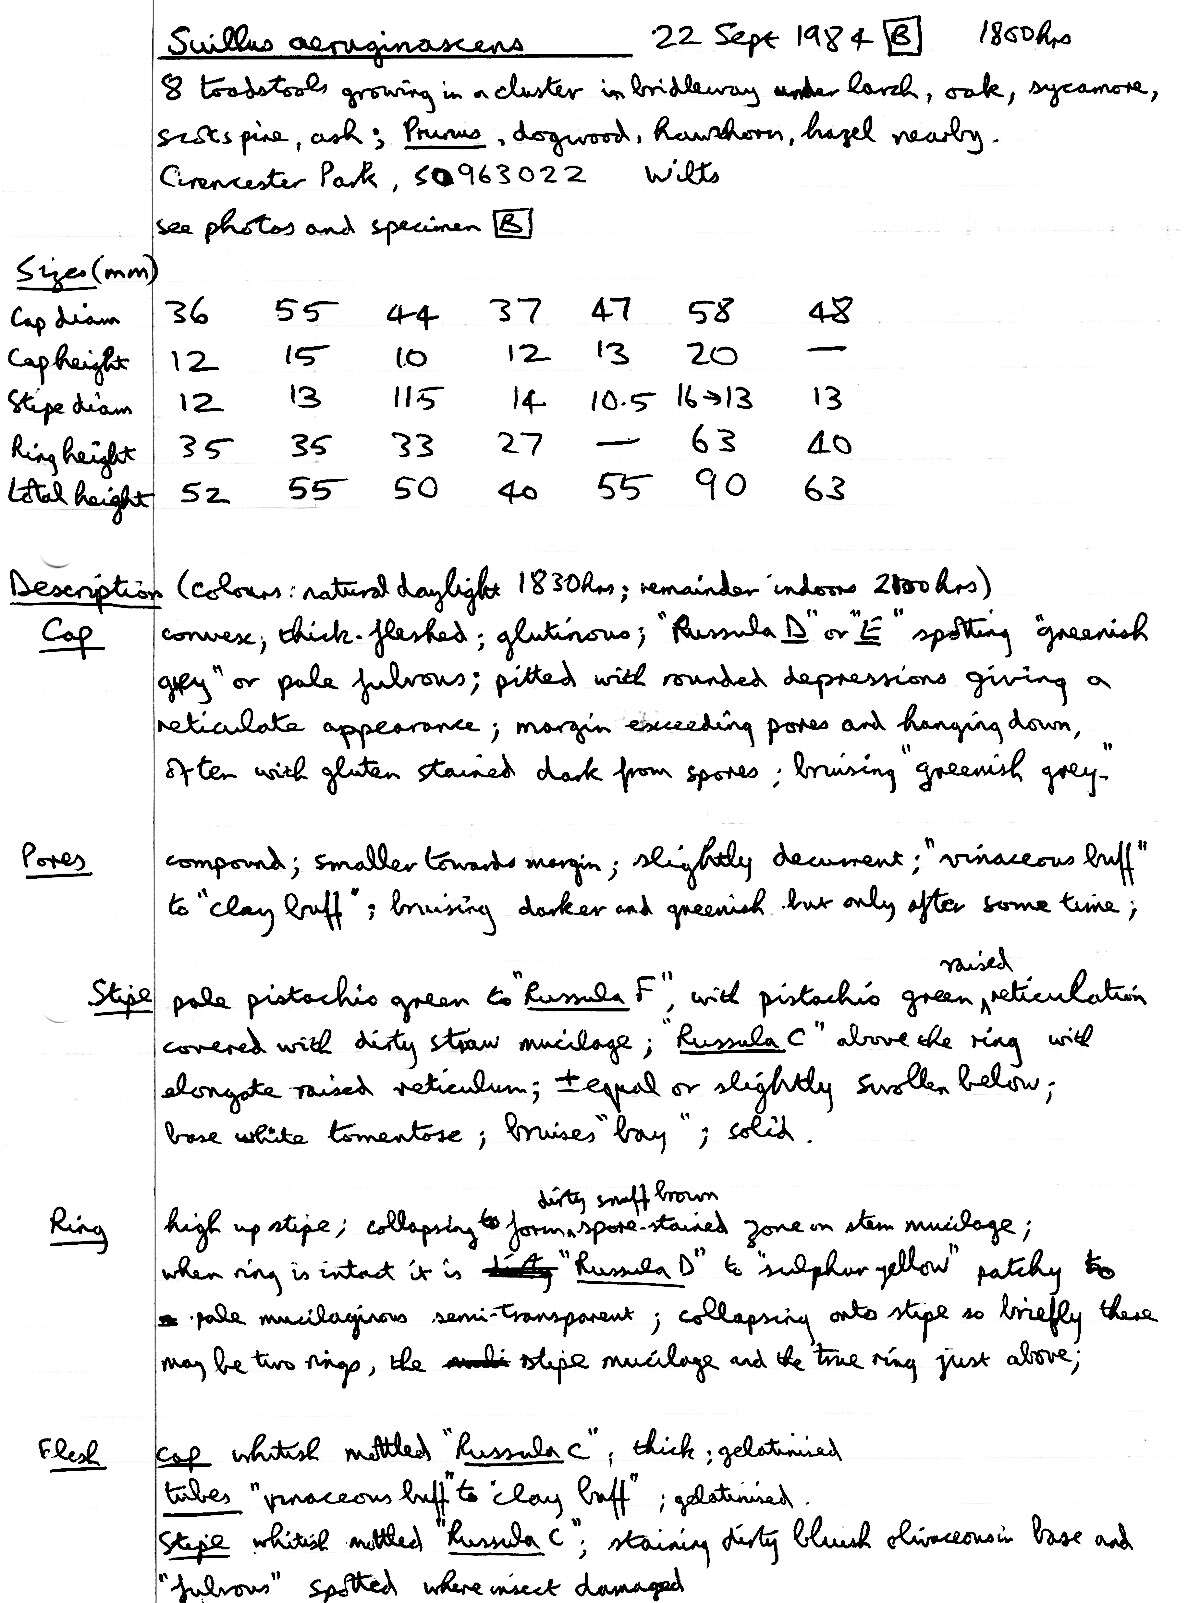 Suillus aeruginascens 22 Sept 1984 B 1800hrs
8 toadstools growing in a cluster in bridleway under larch, oak, sycamore,
scots pine, ash; Prunus, dogwood, hawthorn, hazel nearby.
Cirencester Park, SO963022 Wilts
see photos and specimen B
Sizes (mm)
Cap diam 36 55 44 37 47 58 48
Cap height 12 15 10 12 13 20 —
Stipe diam 12 13 115 14 10.5 16→13 13
Ring height 35 35 33 27 — 63 40
total height 52 55 50 40 55 90 63
Description (colours: natural daylight 1830hrs; remainder indoors 2100hrs)
Cap convex; thick-fleshed; glutinous; "Russula D" or "E" spotting "greenish
grey" or pale fulvous; pitted with rounded depressions giving a
reticulate appearance; margin exceeding pores and hanging down,
often with gluten stained dark from spores; bruising "greenish grey"
Pores compound; smaller towards margin; slightly decurrent; "vinaceous buff"
to "clay buff"; bruising darker and greenish but only after some time;
Stipe pale pistachio green to "Russula F", with pistachio green raised reticulation
covered with dirty straw mucilage; "Russula C" above the ring with
elongate raised reticulum; ± equal or slightly swollen below;
base white tomentose; bruises "bay"; solid.
Ring high up stipe; collapsing to form dirty snuff brown spore-stained zone on stem mucilage;
when ring is intact it is dirty "Russula D" to "sulphur yellow" patchy to
a pale mucilaginous semi-transparent; collapsing onto stipe so briefly there
may be two rings, the stipe mucilage and the true ring just above;
Flesh cap whitish mottled "Russula C"; thick; gelatinised
tubes "vinaceous buff" to "clay buff"; gelatinised.
Stipe whitish mottled "Russula C"; staining dirty bluish olivaceous in base and
"fulvous" spotted where insect damaged